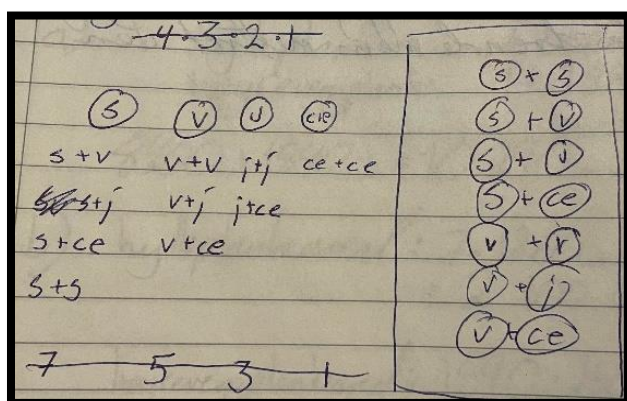 4·3·2·1
s v j ce
s+v v+v j+j ce+ce
s+j v+j j+ce
s+ce v+ce
s+s
7 5 3 1
s+s
s+v
s+j
s+ce
v+v
v+j
v+ce